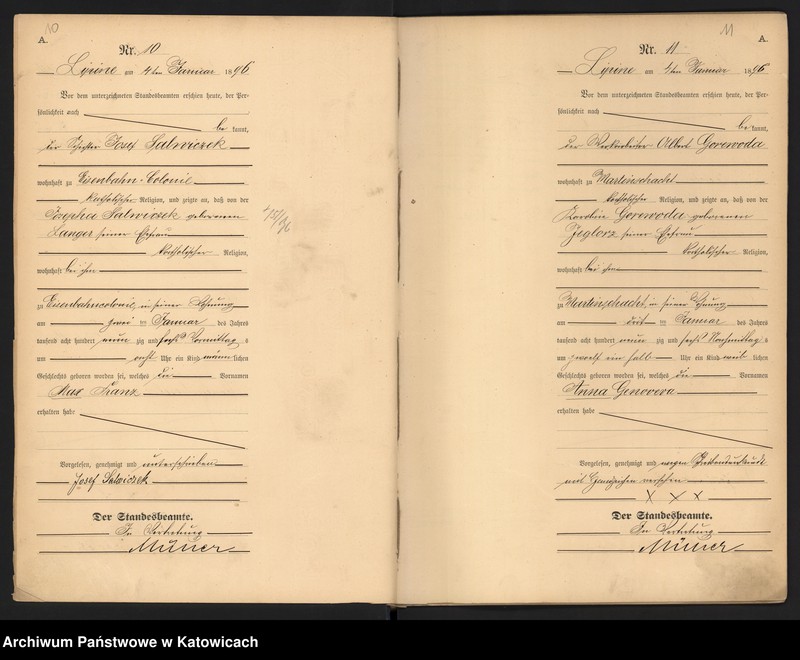 10
A.
Nr. 10
Lipine am 4ten Januar 1896.
Vor dem unterzeichneten Standesbeamten erschien heute, der Per-
sönlichkeit nach
bekannt,
der Josef Salwiczek
wohnhaft zu Eisenbahn-Colonie
katholischer Religion, und zeigte an, daß von der
Josepha Salwiczek geborenen
Langer seiner Ehefrau
katholischer Religion,
wohnhaft bei ihm
zu Eisenbahncolonie, in seiner Wohnung
am zwei ten Januar des Jahres
tausend acht hundert neun zig und sechs Vormittag s
um acht Uhr ein Kind männ lichen
Geschlechts geboren worden sei, welches die Vornamen
Max Franz
erhalten habe
Vorgelesen, genehmigt und unterschrieben
Josef Salwiczek
Der Standesbeamte.
In Vertretung
Müller
11
A.
Nr. 11
Lipine am 4ten Januar 1896
Vor dem unterzeichneten Standesbeamten erschien heute, der Per-
sönlichkeit nach
bekannt,
der Albert Gorewoda
wohnhaft zu Martinschacht
katholischer Religion, und zeigte an, daß von der
Karoline Gorewoda geborenen
Zeglorz seiner Ehefrau
katholischer Religion,
wohnhaft bei ihm
zu Martinschacht, in seiner Wohnung
am drit ten Januar des Jahres
tausend acht hundert neun zig und sechs Nachmittag s
um zwölf ein halb Uhr ein Kind weib lichen
Geschlechts geboren worden sei, welches die Vornamen
Anna Genovera
erhalten habe
Vorgelesen, genehmigt und wegen Schreibensunkunde
mit Handzeichen versehen
X X X
Der Standesbeamte.
In Vertretung
Müller
Archiwum Państwowe w Katowicach